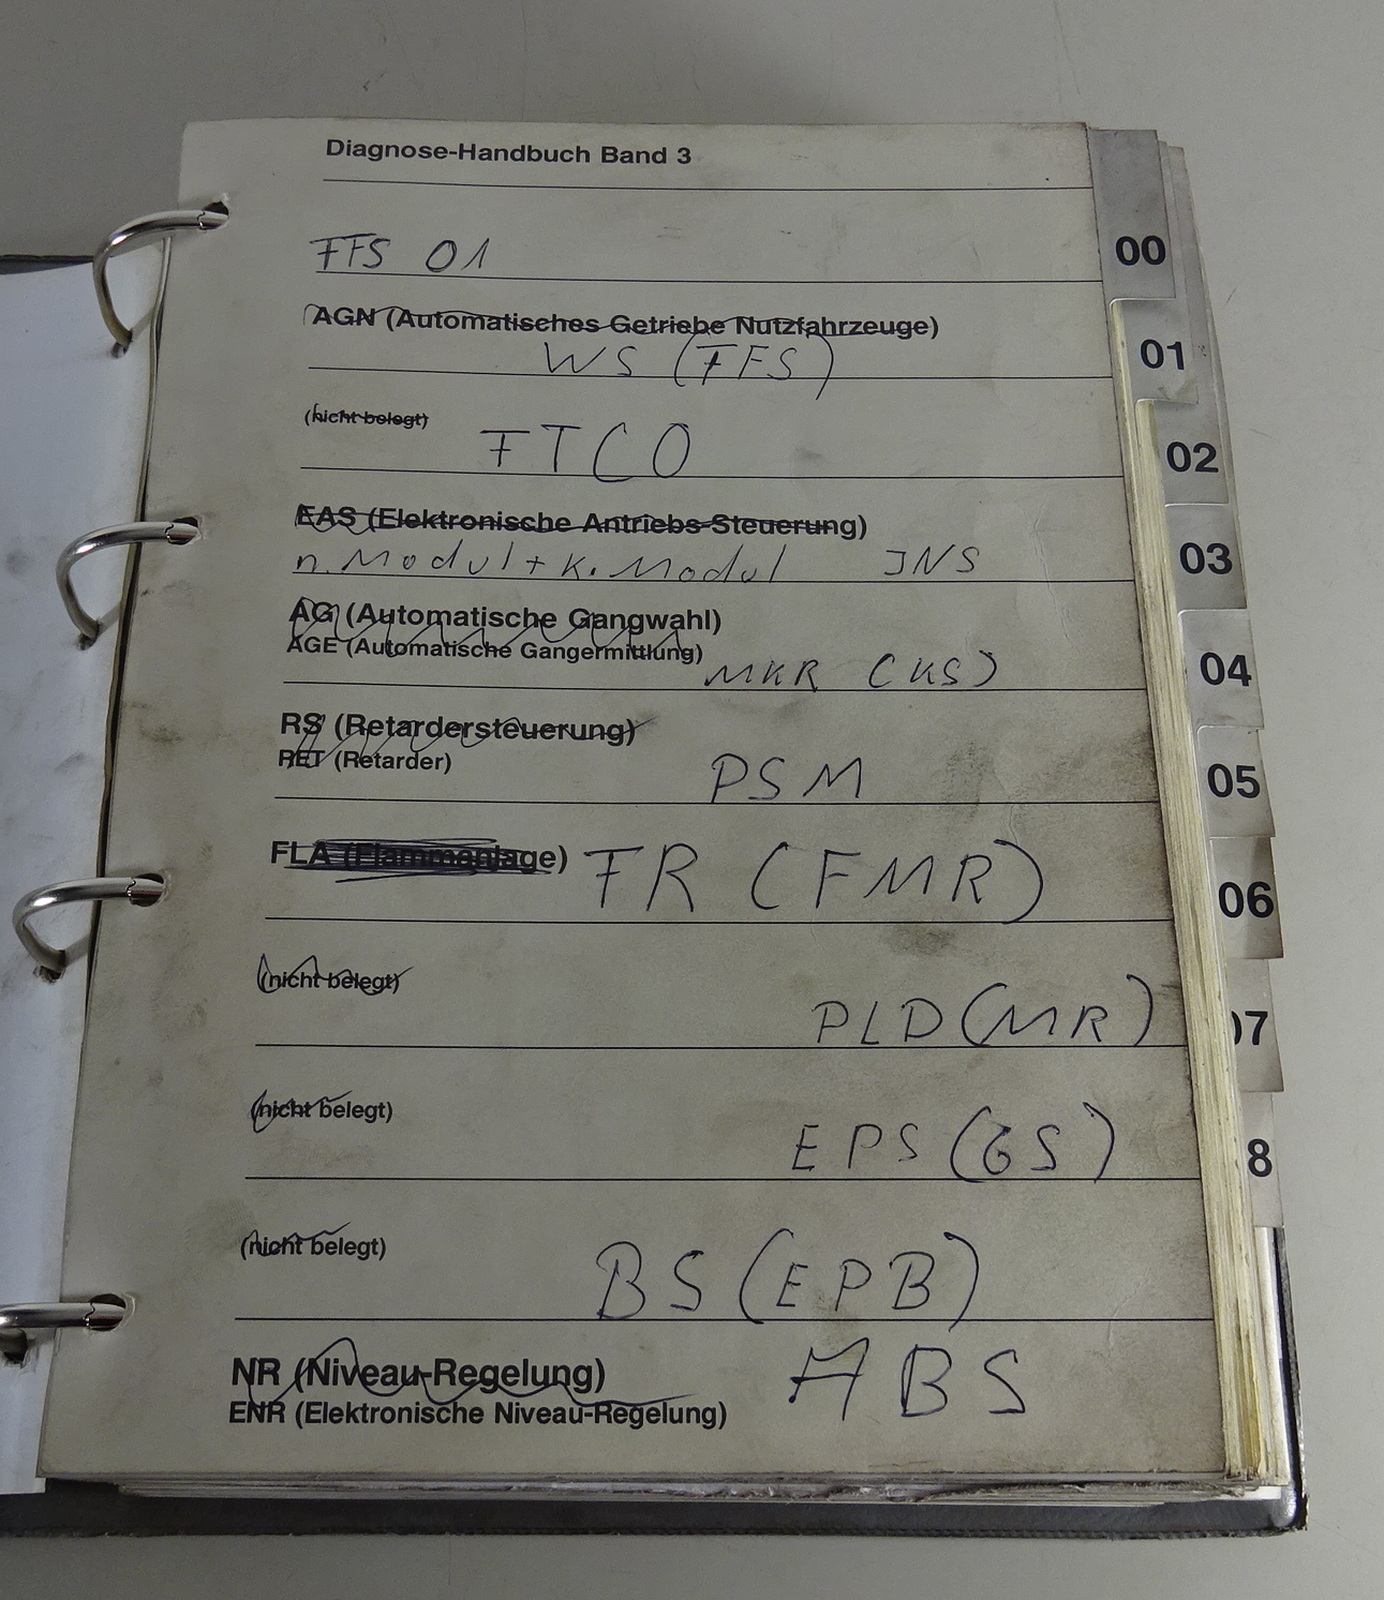 Diagnose-Handbuch Band 3
00
FFS 01
AGN (Automatisches Getriebe Nutzfahrzeuge)
01
WS (FFS)
(nicht belegt)
FTCO
02
EAS (Elektronische Antriebs-Steuerung)
n. Modul + K. Modul INS
03
AG (Automatische Gangwahl)
AGE (Automatische Gangermittlung)
MKR (KS)
04
RS (Retardersteuerung)
RET (Retarder)
PSM
05
FLA (Flammanlage) FR (FMR)
06
(nicht belegt)
PLD (MR)
07
(nicht belegt)
EPS (GS)
8
(nicht belegt)
BS (EPB)
NR (Niveau-Regelung)
ABS
ENR (Elektronische Niveau-Regelung)